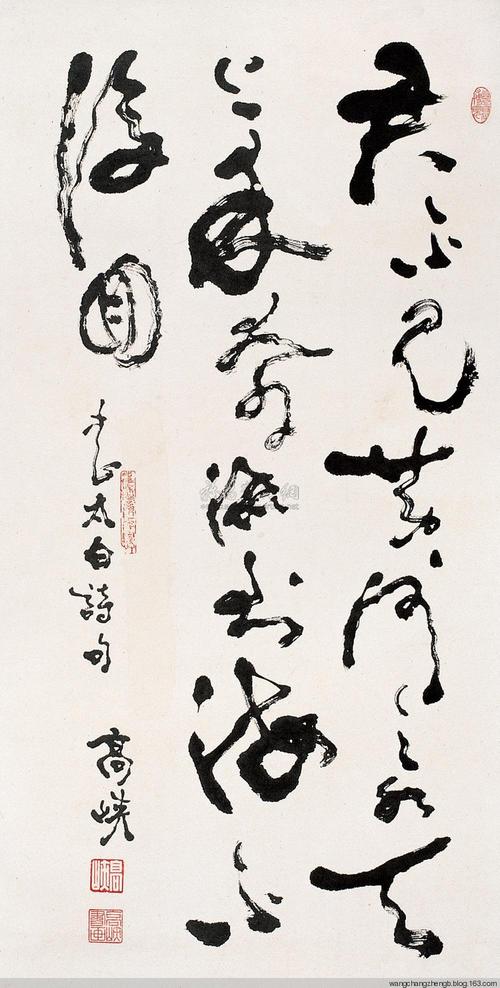 君不見黃河之水天
上來奔流到海不
復回
書太白詩句
高峽
高峽
wangchangzhengb.blog.163.com